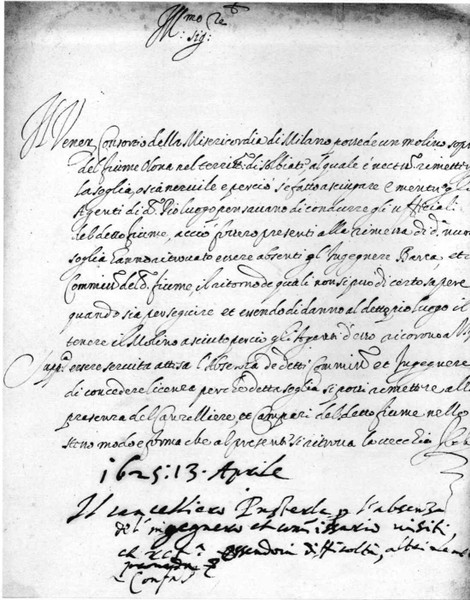 Ill.mo Sig.re
Il Vener. Consortio della Misericordia di Milano possede un molino sopra
del fiume Olona nel territ. di Solbiate, al quale è necess. rimettere
la soglia, o sia nervile e perciò si è fatto asciugare e mentre gl'
Agenti di d. Pio luogo pensavano di condurre gli ufficiali
del detto fiume, acciò fossero presenti alla rimessa di d. nuova
soglia hanno ritrovato essere absenti gl' Ingegnere Barca, et
Commiss. del d. fiume, il ritorno de quali non si può di certo sapere
quando sia per seguire et essendo di danno al detto pio luogo il
tenere il Molino asciuto perciò gli Agenti d'esso ricorrono a
Supp. essere servita attesa l'absenza de detti Commiss. et Ingegnere
di concedere licenza perché detta soglia si possi rimettere alla
presenza del Cancelliere, et Campari del detto fiume nello
stesso modo e forma che al presente si ritrova la vecchia
1625. 13. Aprile
Il cancelliero Pusterla p l'absenza
de l'ingegnero et comissario visiti,
et essendovi difficoltà,